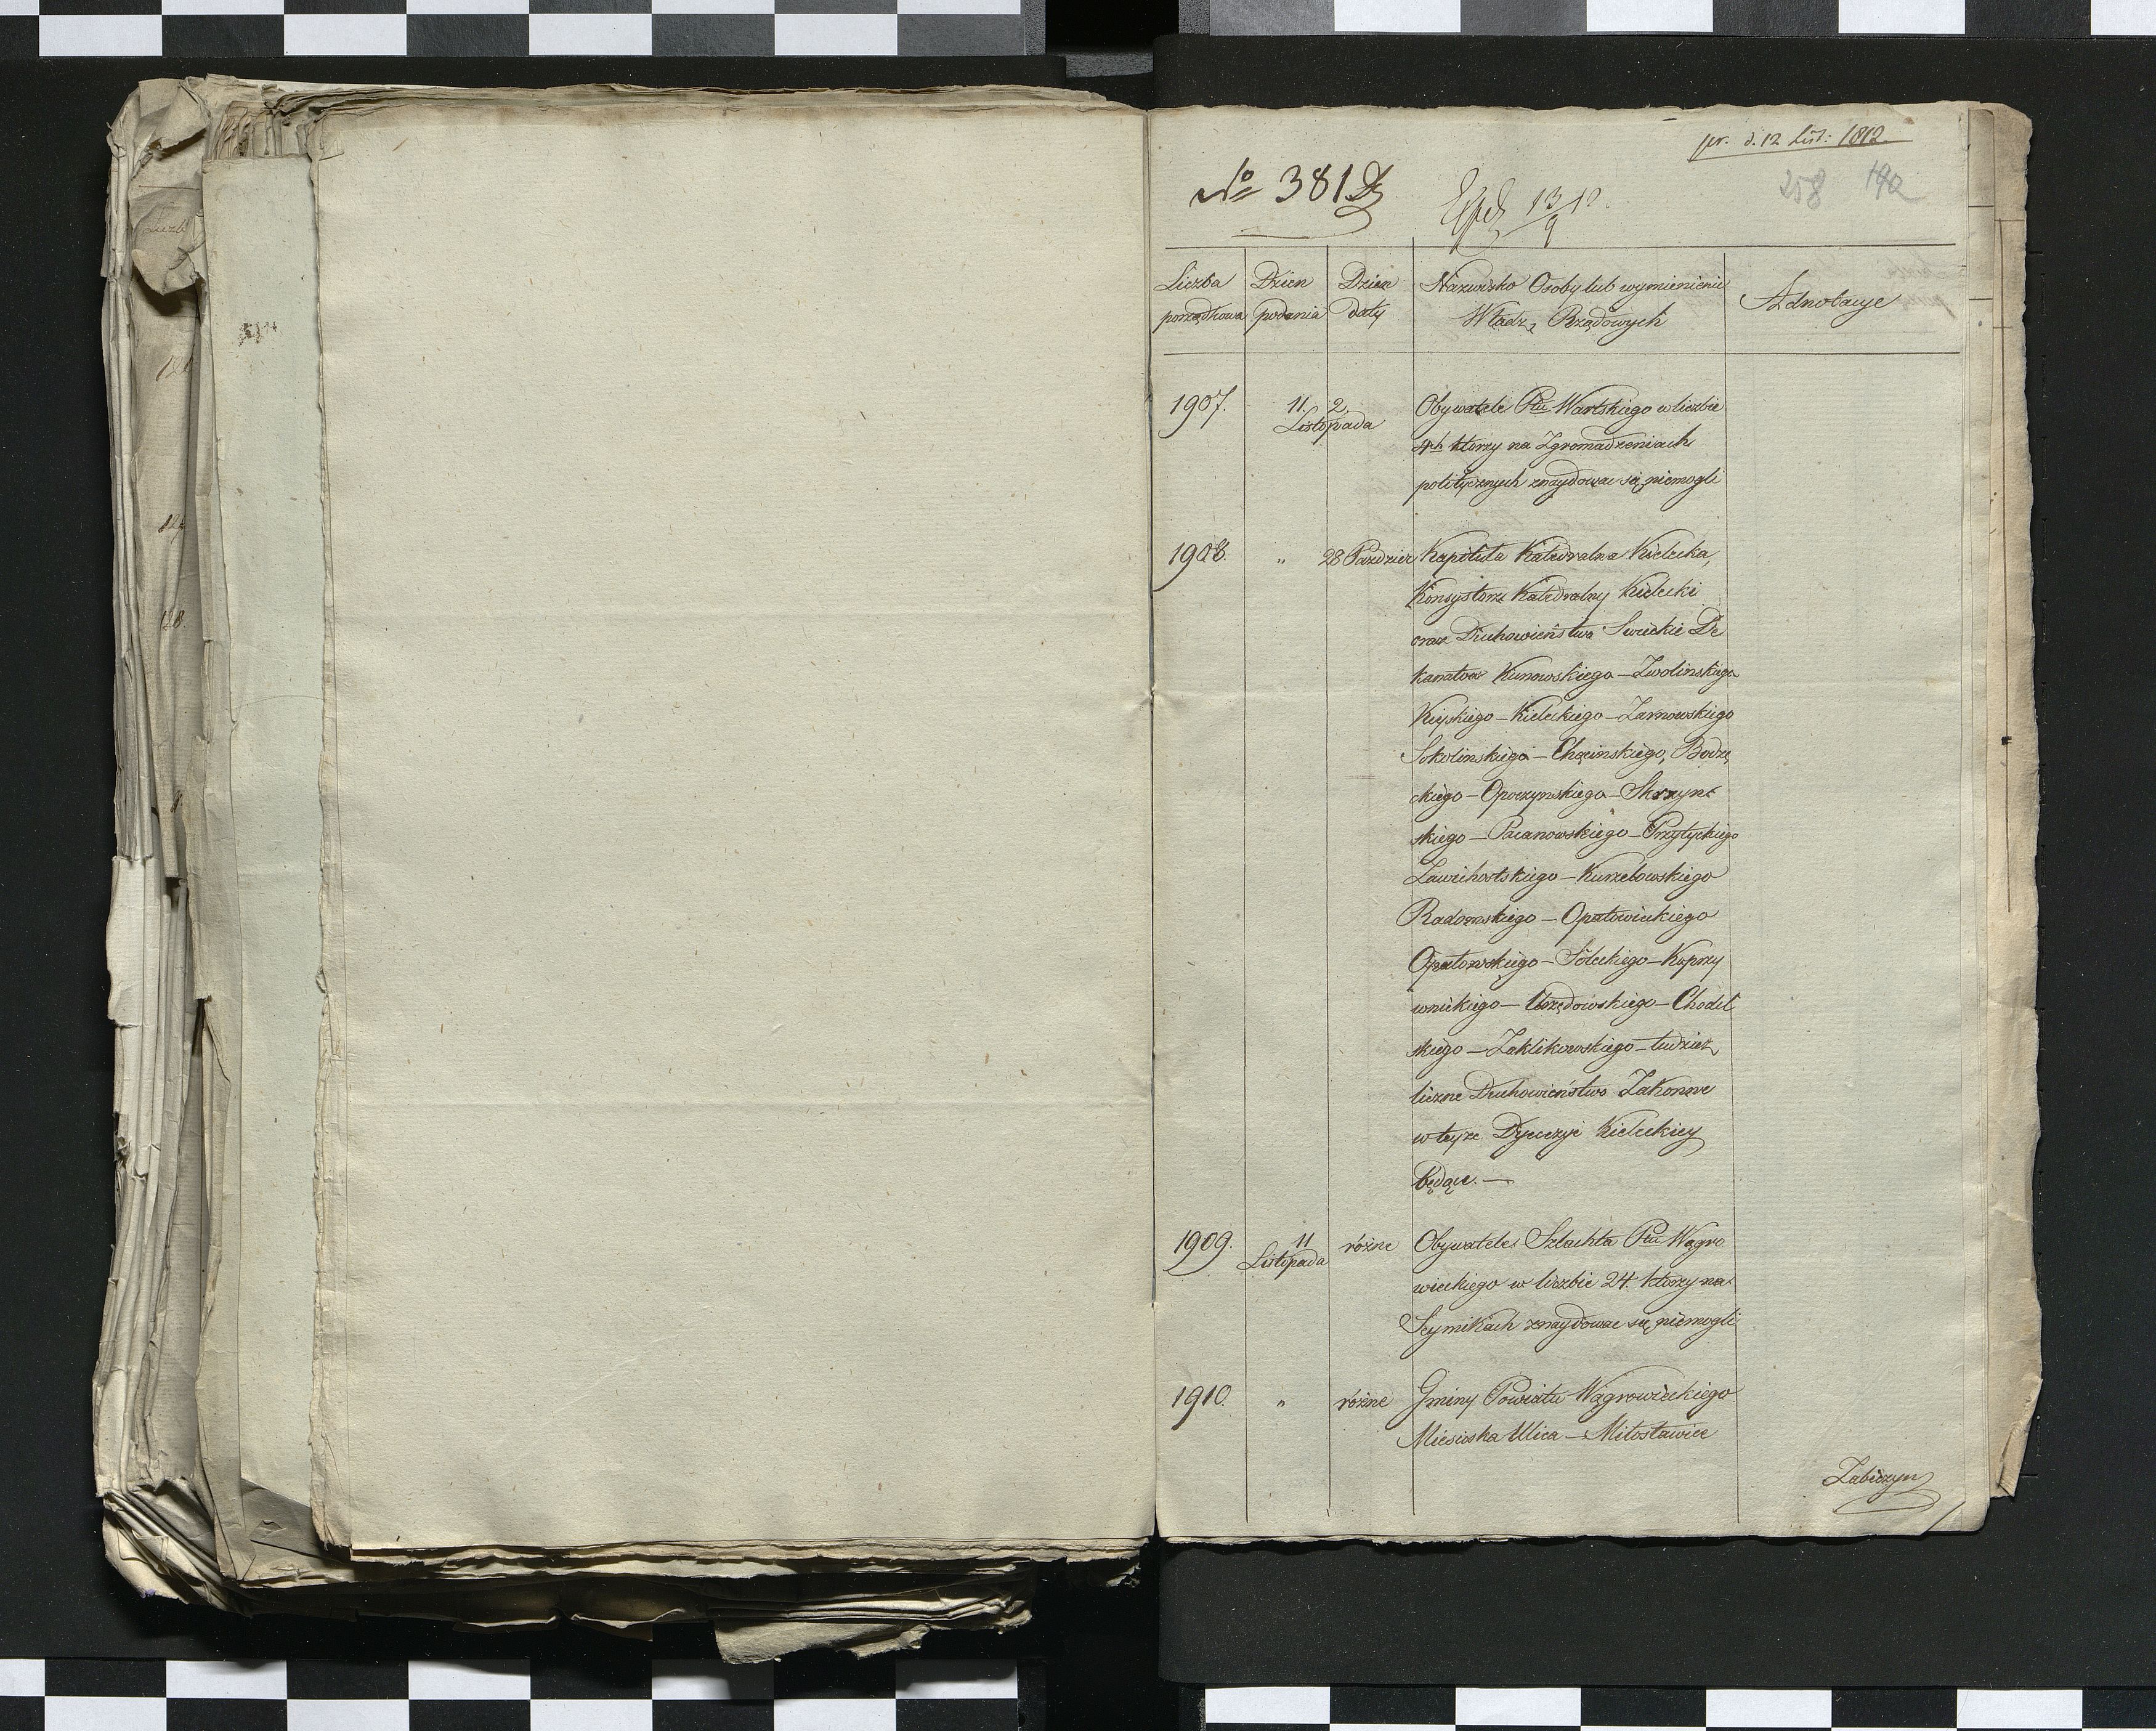 pr. d. 12 List: 1812.
258 192
No 381
Liczba porządkowa
Dzien podania
Dzien daty
Nazwisko Osoby lub wymienienie
Władz Rządowych
Adnotacye
1907. 11. 2. Listopada Obywatele Ptu Wartskiego w liczbie
ktorzy na Zgromadzeniach
politycznych znaydować się niemogli
1908. " 28 Pazdzier Kapituła Katedralna Kielecka,
Konsystorz Katedralny Kielecki
oraz Duchowieństwa Swieckie De
kanatow Kunowskiego – Zwolinskiego
Kiyskiego – Kieleckiego – Zarnowskiego
Sokolinskiego – Chęcinskiego, Bodzę
ckiego – Opoczynskiego – Skrzyn
skiego – Pacanowskiego – Przytyckiego
Zawichostskiego – Kurzelowskiego
Radomskiego – Opatowieckiego
Opatowskiego – Soleckiego – Koprzy
wnickiego – Urzędowskiego – Chodel
skiego – Zaklikowskiego – tudzież
liczne Duchowieństwo Zakonne
w teyze Dyecezyi Kieleckiey
będące. –
1909. 11 Listopada rożne Obywatele Szlachta Ptu Wągro
wieckiego w liczbie 24. ktorzy na
Seymikach znaydowac się niemogli
1910. " rożne Gminy Powiatu Wągrowieckiego
Miesciska Ulica – Miłosławice
Zabiczyn